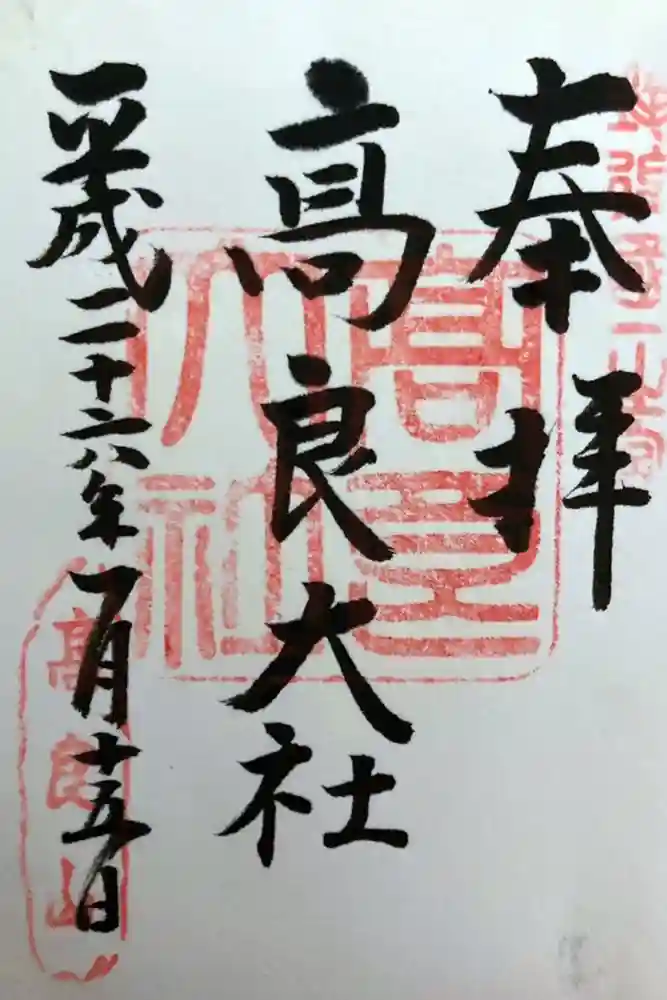 奉拝
高良大社
平成二十六年一月十五日
高良大社